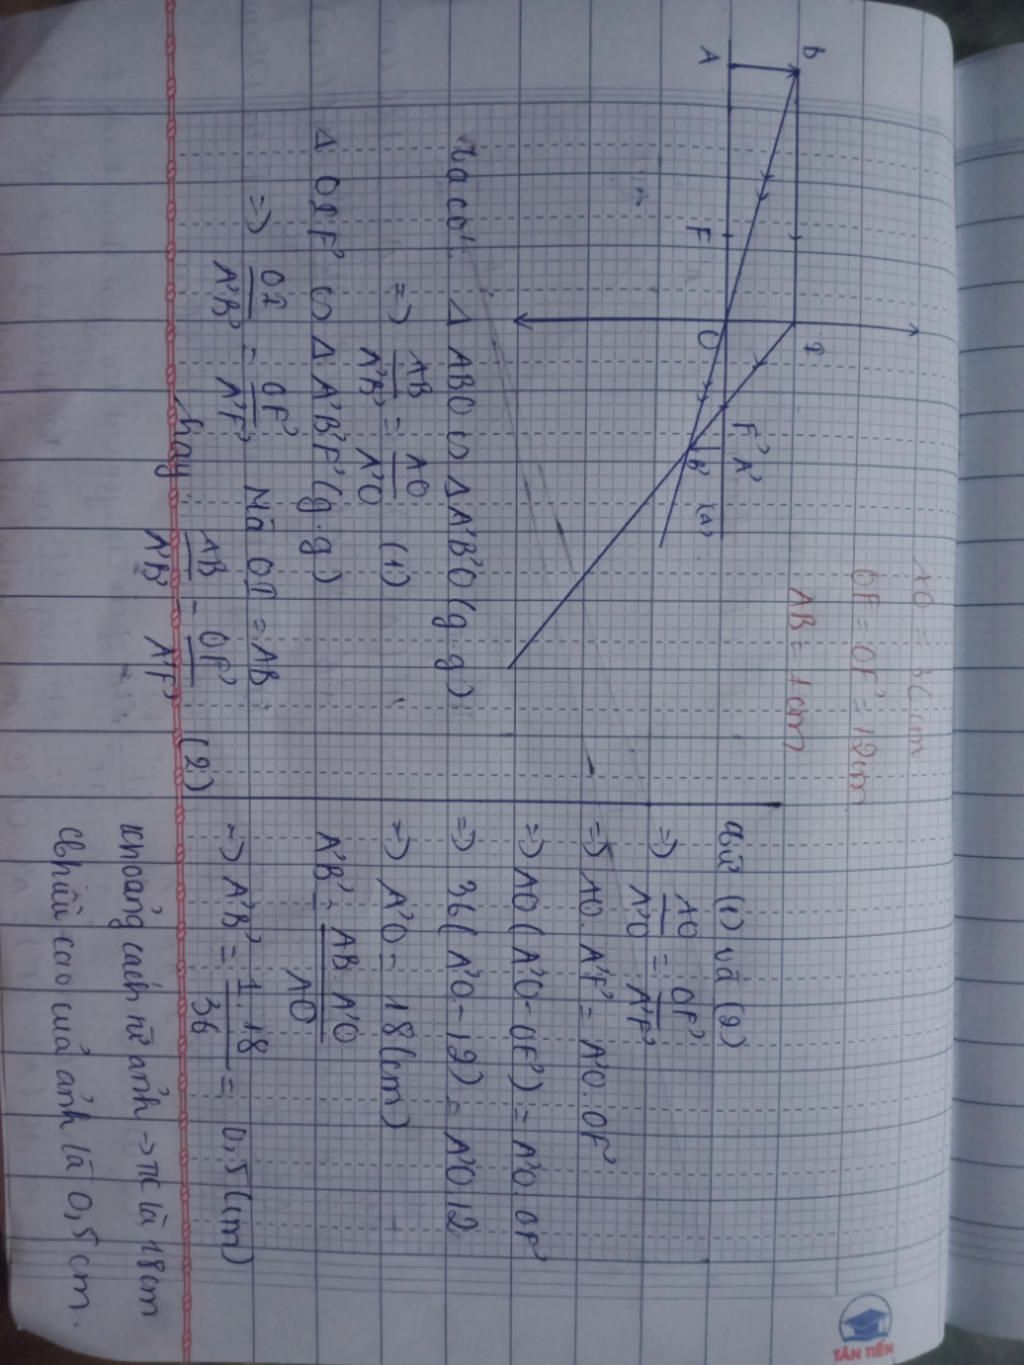 AO = 36cm
OF = OF' = 12cm
AB = 1cm
B
I
A
F
O
F'
A'
B'
(Δ)
Ta có: Δ ABO ∽ Δ A'B'O (g.g)
=> AB/A'B' = AO/A'O (1)
Δ OIF' ∽ Δ A'B'F' (g.g)
=> OI/A'B' = OF'/A'F' Mà OI = AB
hay AB/A'B' = OF'/A'F' (2)
Từ (1) và (2)
=> AO/A'O = OF'/A'F'
=> AO. A'F' = A'O. OF'
=> AO (A'O - OF') = A'O. OF'
=> 36 (A'O - 12) = A'O. 12
=> A'O = 18 (cm)
A'B' = AB. A'O/AO
=> A'B' = 1. 18/36 = 0,5 (cm)
Khoảng cách từ ảnh -> TK là 18cm
Chiều cao của ảnh là 0,5 cm.
TÂN TIẾN